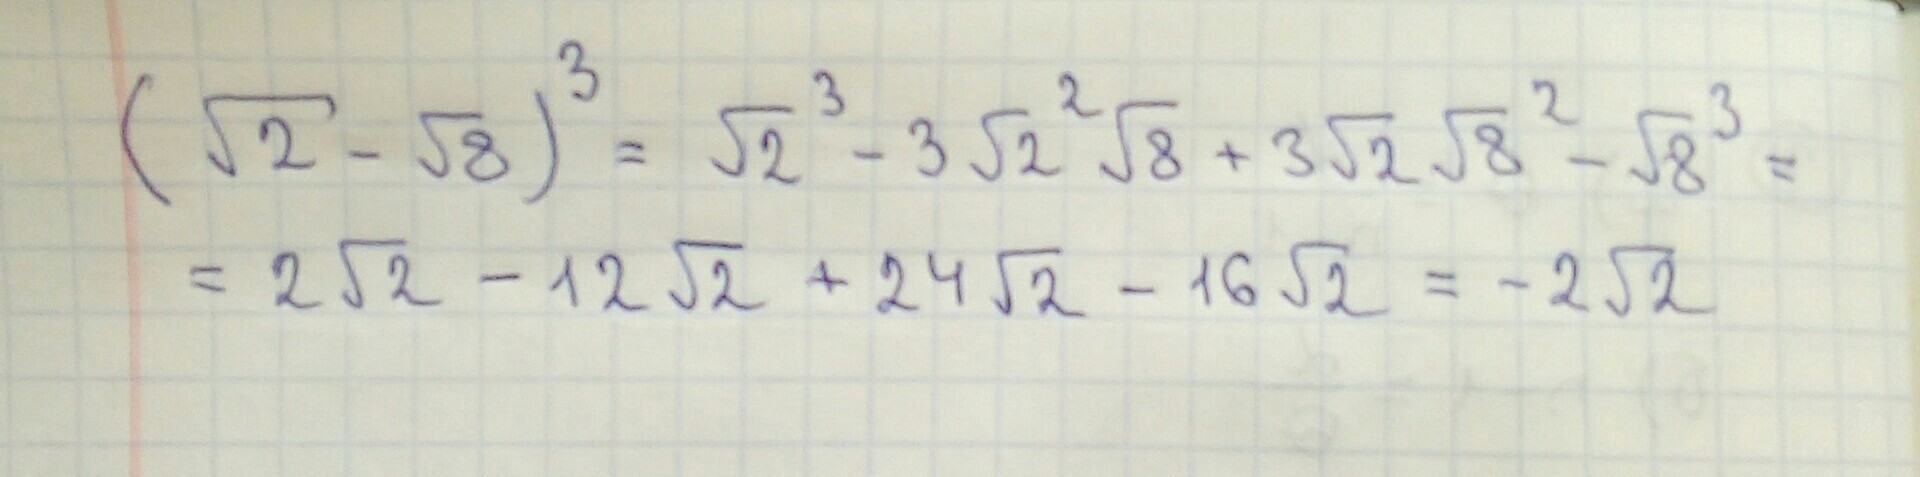 (√2 - √8)³ = √2³ - 3√2²√8 + 3√2√8² - √8³ =
= 2√2 - 12√2 + 24√2 - 16√2 = -2√2